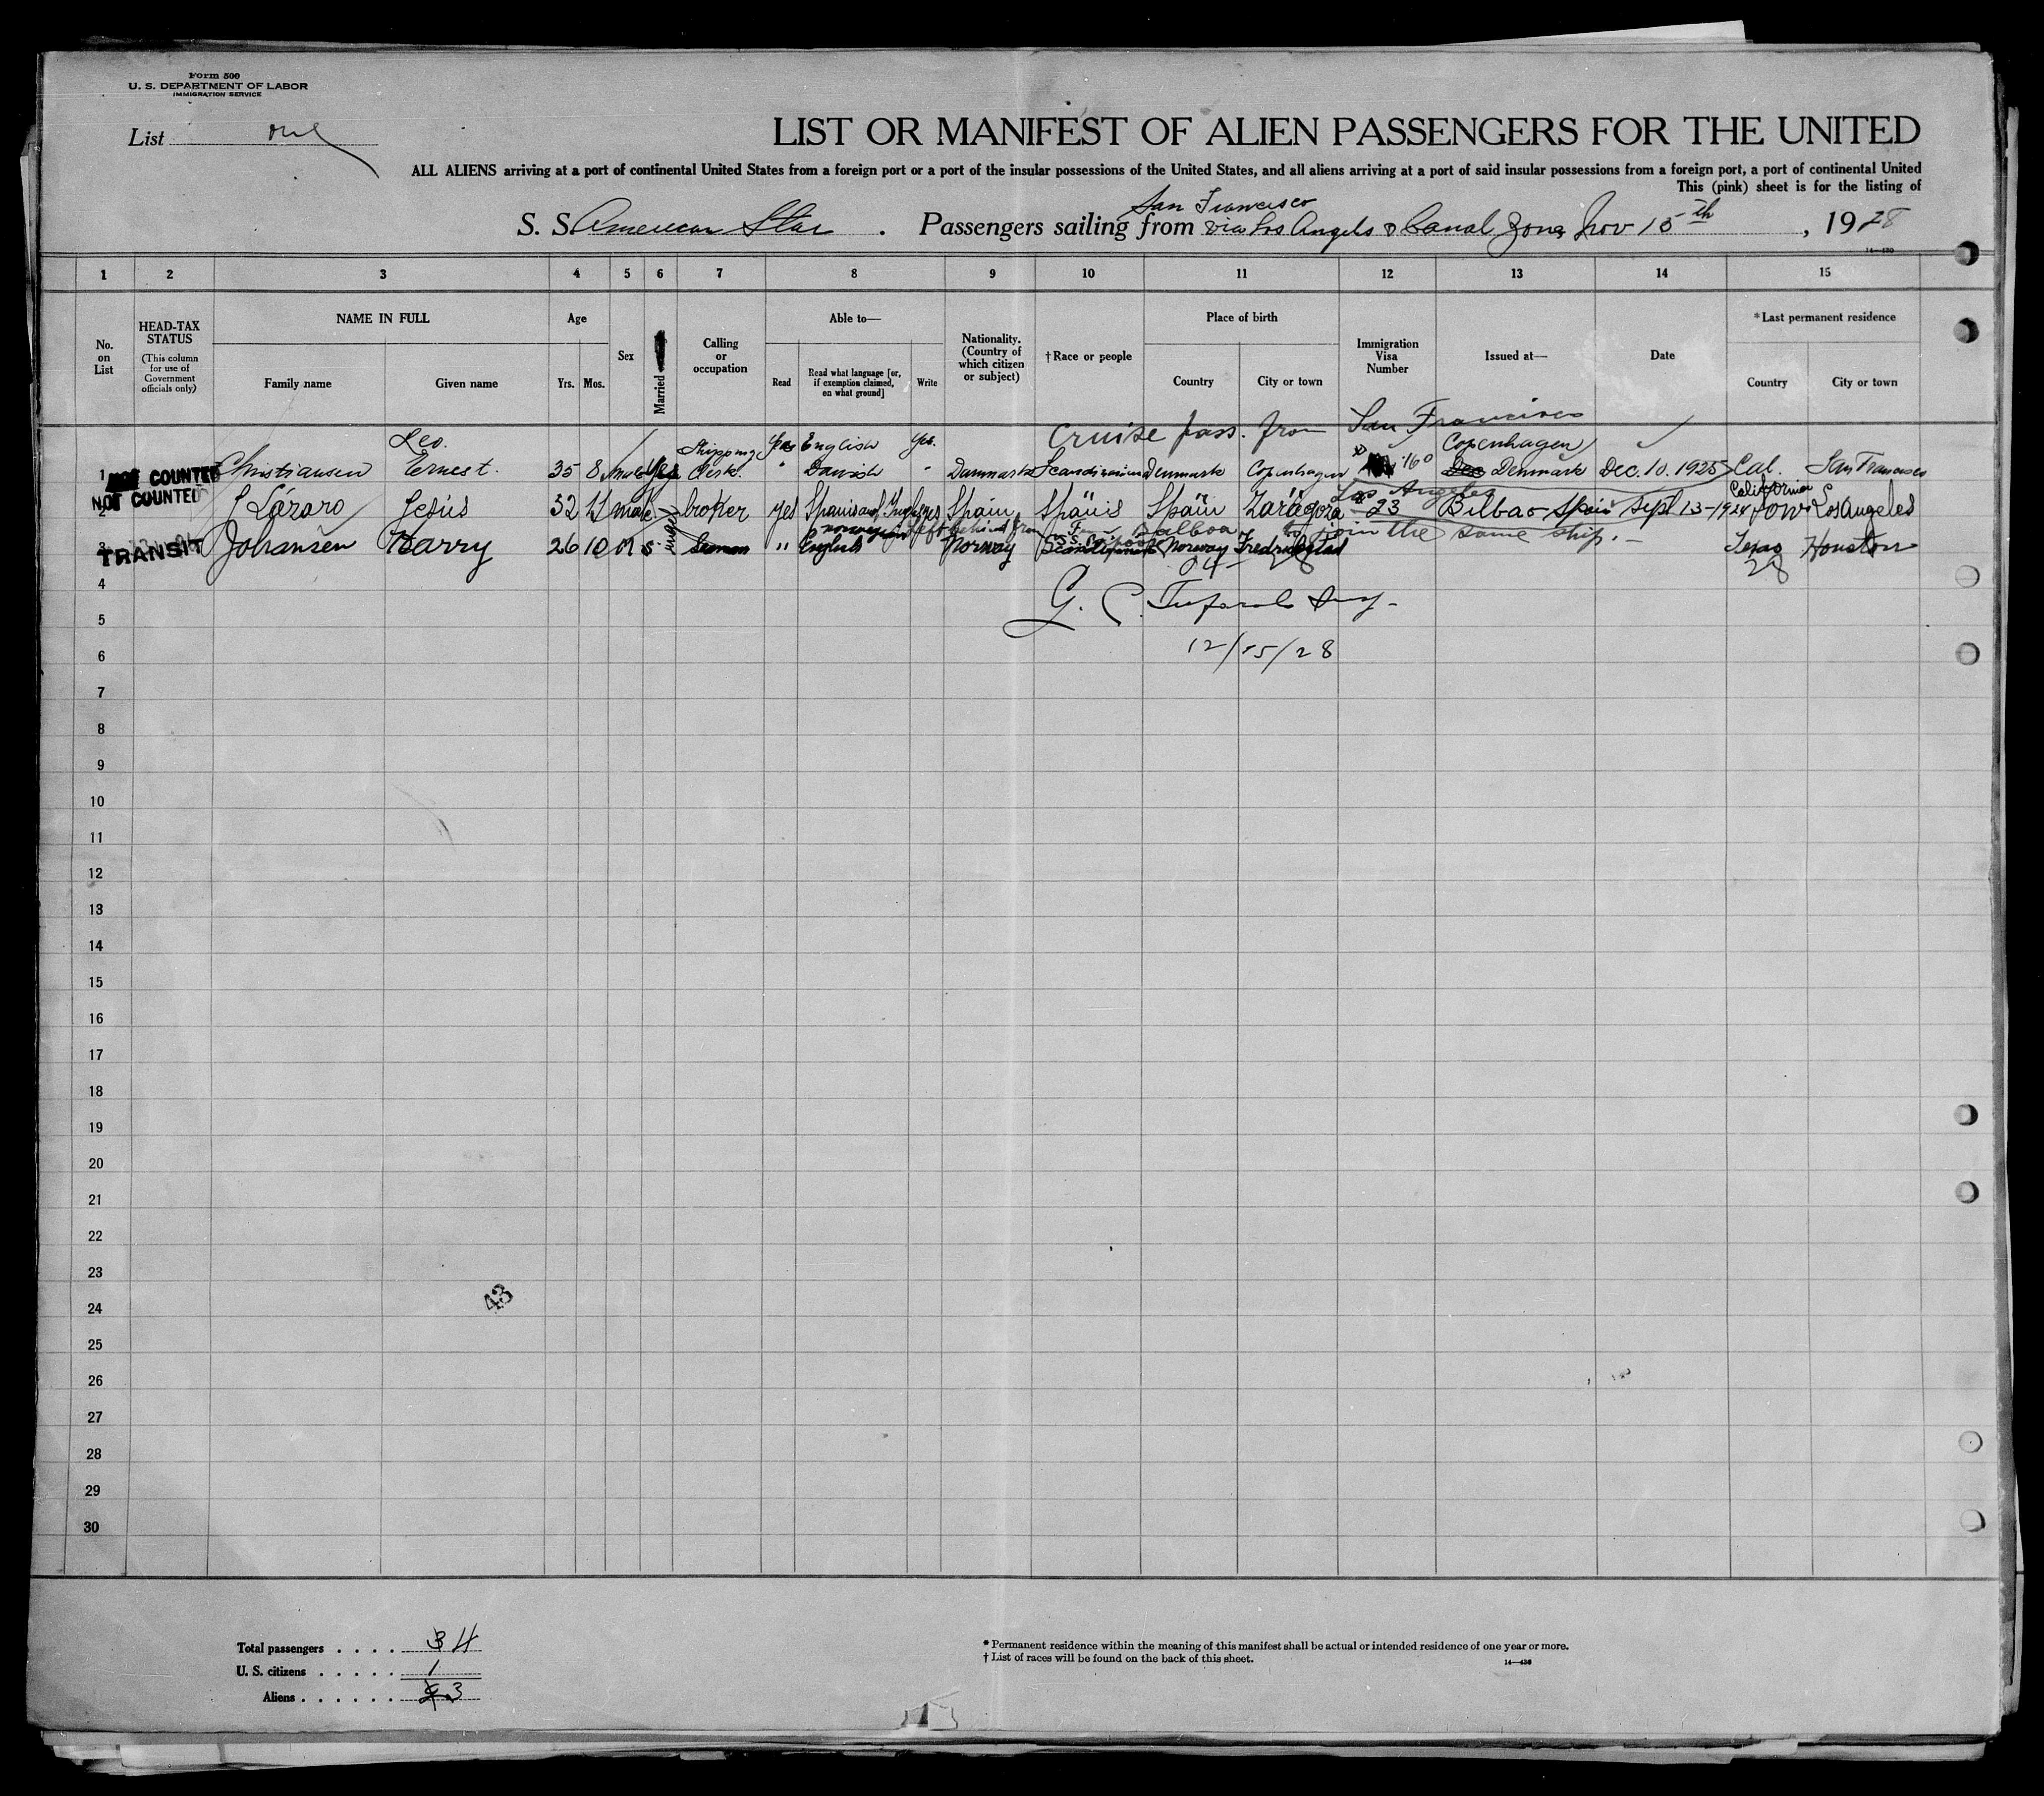 Form 500
U. S. DEPARTMENT OF LABOR
IMMIGRATION SERVICE
List one
LIST OR MANIFEST OF ALIEN PASSENGERS FOR THE UNITED
ALL ALIENS arriving at a port of continental United States from a foreign port or a port of the insular possessions of the United States, and all aliens arriving at a port of said insular possessions from a foreign port, a port of continental United
This (pink) sheet is for the listing of
San Francisco
S. S. American Star . Passengers sailing from via Los Angels & Canal Zone, Nov 15th, 1928
14—430
1 2 3 4 5 6 7 8 9 10 11 12 13 14 15
No. on List
HEAD-TAX STATUS
(This column for use of Government officials only)
NAME IN FULL
Family name Given name
Age
Yrs. Mos.
Sex
Married
Calling or occupation
Able to—
Read
Read what language [or, if exemption claimed, on what ground]
Write
Nationality. (Country of which citizen or subject)
†Race or people
Place of birth
Country City or town
Immigration Visa Number
Issued at—
Date
*Last permanent residence
Country City or town
Cruise pass. from San Francisco
Leo. Shipping yes English yes. Copenhagen
1 NOT COUNTED Christiansen Ernest. 35 8 male yes Clerk. " Danish " Danmark Scandinavian Denmark Copenhagen 160 Denmark Dec. 10. 1925 Cal. San Francisco
Los Angeles California
NOT COUNTED
2 Lázaro Jesús 32 11 male. broker yes Spanis and yes Spain Spanis Spain Zaragoza 23 Bilbao Spain Sept 13-1924 Los Angeles
norwegian left behind from Balboa to join the same ship.
3 TRANSIT Johansen Harry 26 10 M s Seaman " English Norway Scandinavia Norway Fredrikstad Texas Houston
28
4
G. C.
5
12/15/28
6
7
8
9
10
11
12
13
14
15
16
17
18
19
20
21
22
23
43
24
25
26
27
28
29
30
Total passengers . . . . 3 4
U. S. citizens . . . . . 1
Aliens . . . . . . 3
* Permanent residence within the meaning of this manifest shall be actual or intended residence of one year or more.
† List of races will be found on the back of this sheet.
14—430